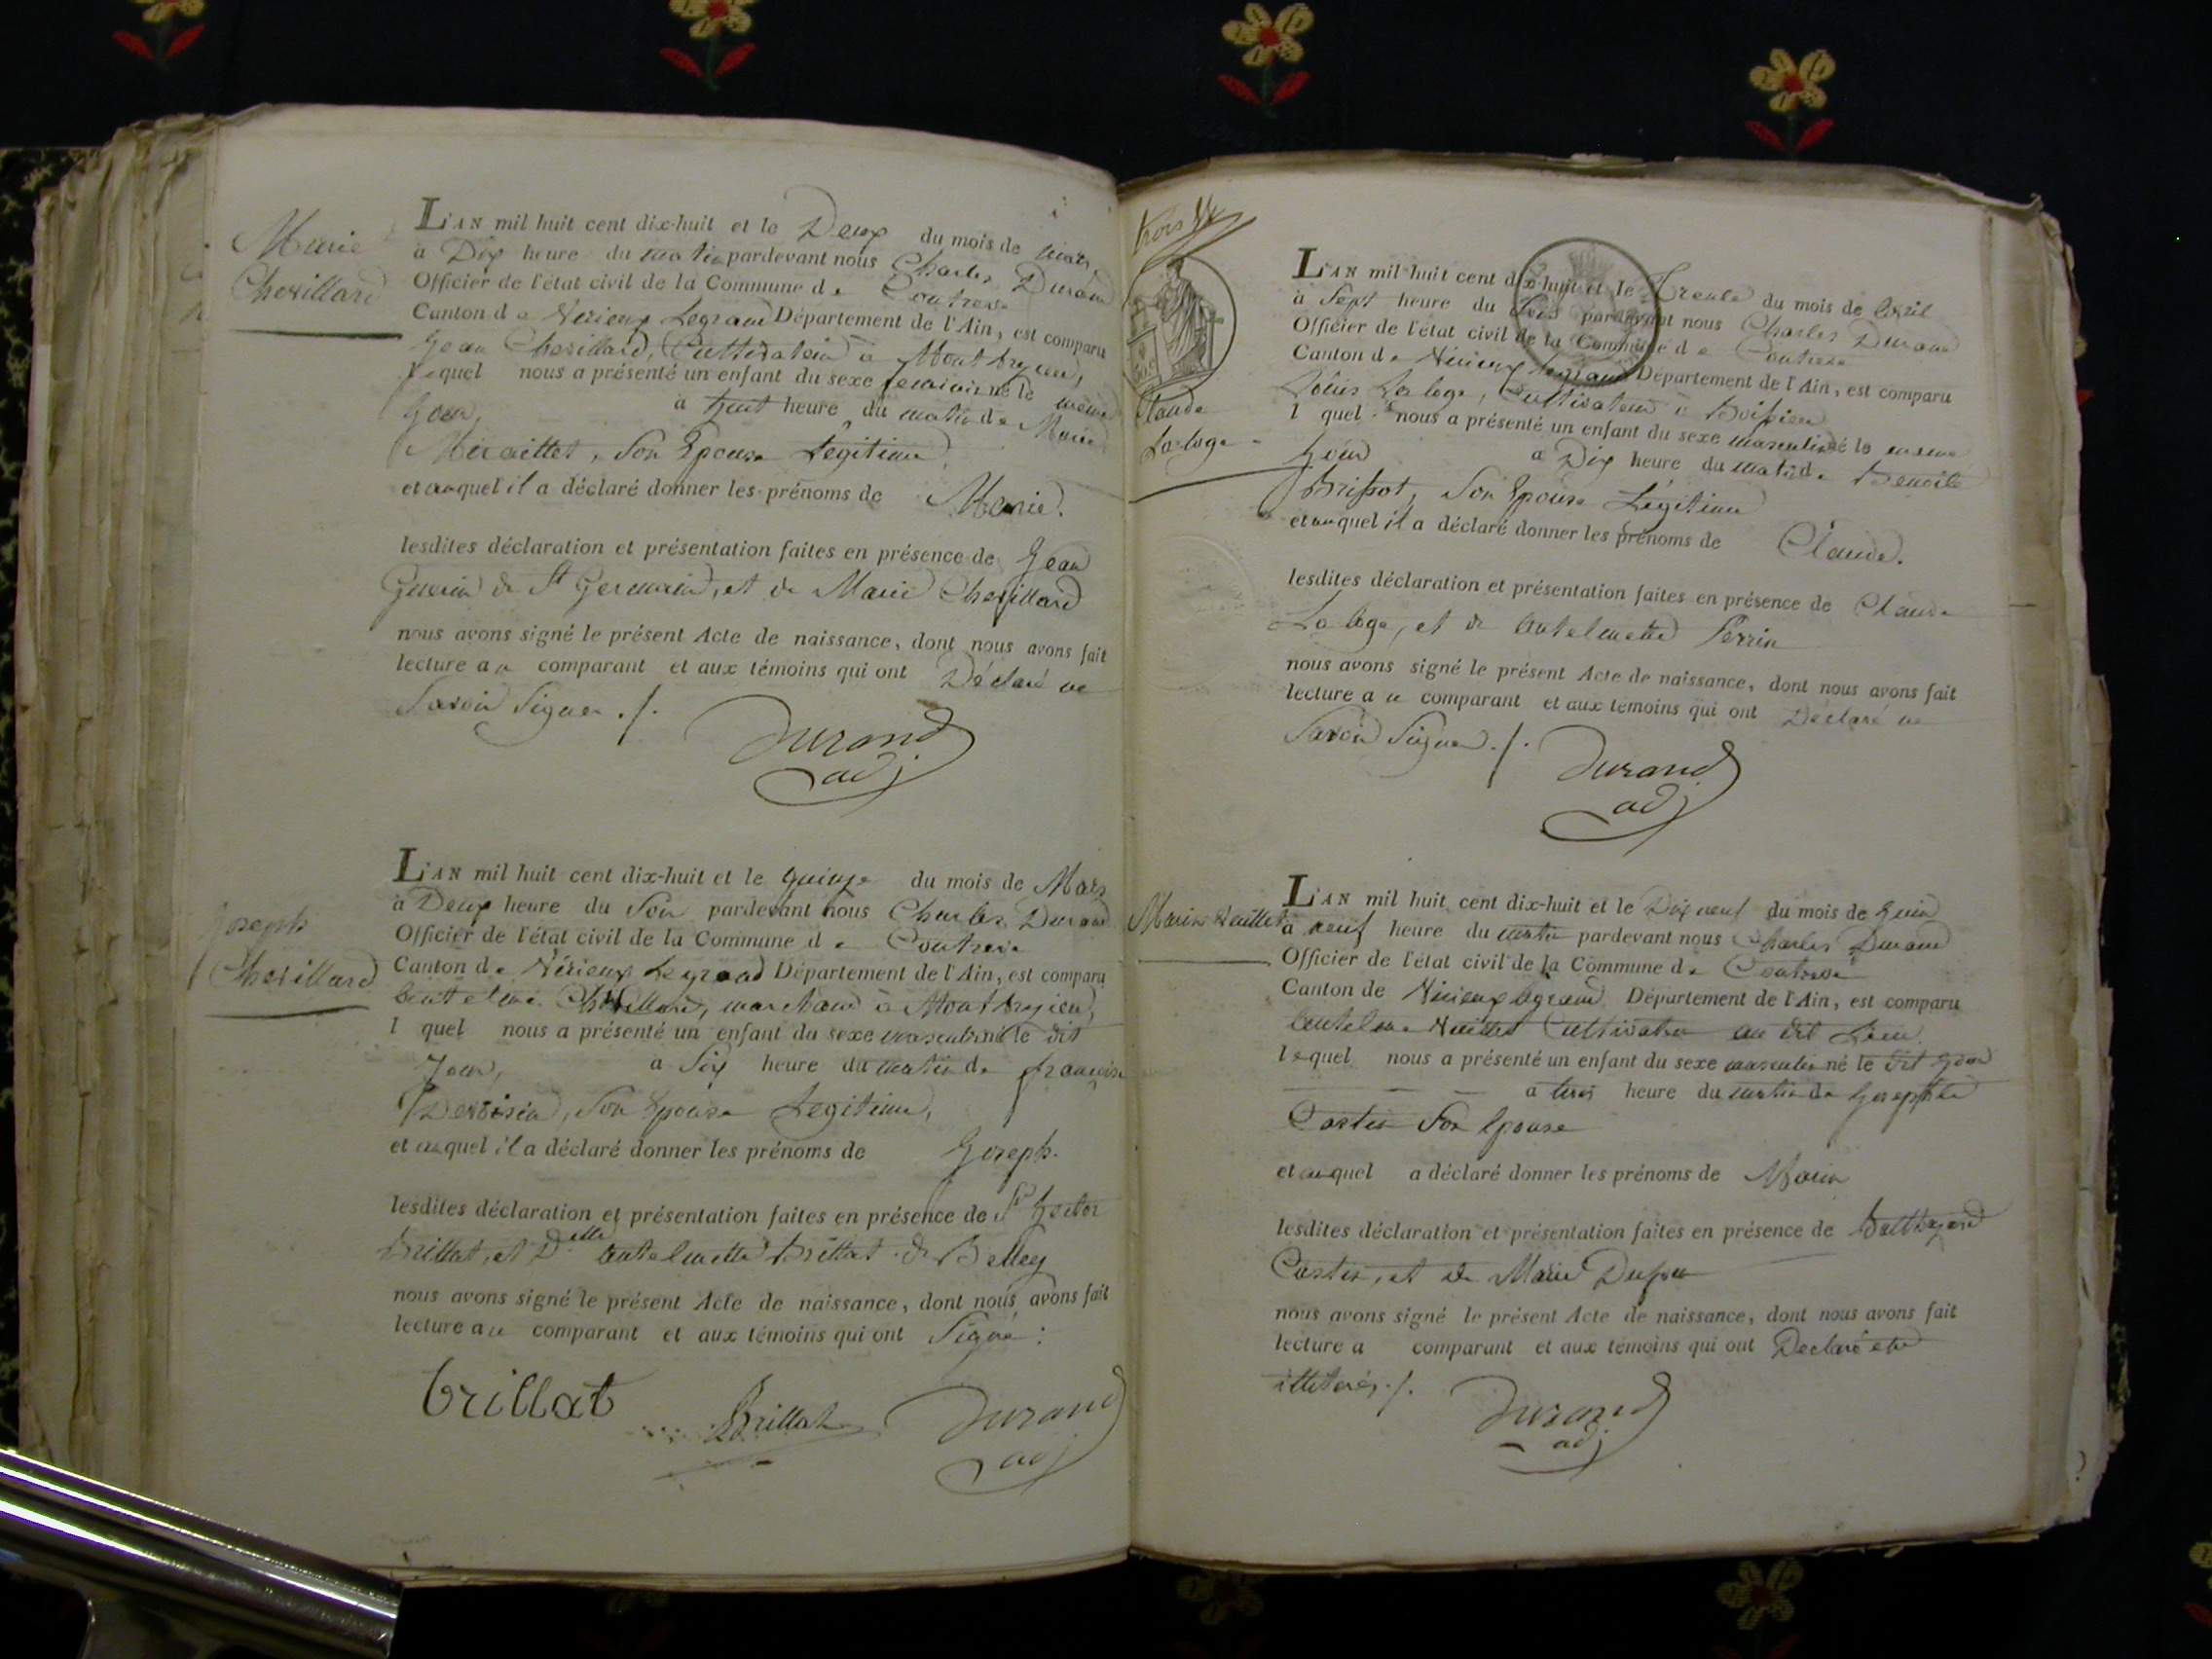 Marie
Chevillard
L'AN mil huit cent dix-huit et le Deux du mois de mars
à Dix heure du matin pardevant nous Charles Durand
Officier de l'état civil de la Commune de Contreve
Canton de Virieux Legrand Département de l'Ain, est comparu
Jean Chevillard, Cultivateur à Montbreyzieu,
lequel nous a présenté un enfant du sexe feminin né le meme
Jour, à huit heure du matin de Marie
Mermillet, Son Epouse Légitime,
et auquel il a déclaré donner les prénoms de Marie.
lesdites déclaration et présentation faites en présence de Jean
Guerin de St Germain, et de Marie Chevillard
nous avons signé le présent Acte de naissance, dont nous avons fait
lecture au comparant et aux témoins qui ont Déclaré ne
Savoir Signer ./.
Durand
adj
Joseph
Chevillard
L'AN mil huit cent dix-huit et le quinze du mois de Mars
à Deux heure du Soir pardevant nous Charles Durand
Officier de l'état civil de la Commune de Contreve
Canton de Virieux Legrand Département de l'Ain, est comparu
antelme Chevillard, marchand à
l quel nous a présenté un enfant du sexe masculin né le dit
Jour, à Six heure du matin de françoise
Devoisin, Son Epouse Legitime,
et auquel il a déclaré donner les prénoms de Joseph.
lesdites déclaration et présentation faites en présence de Sr
Brillat, et Delle antelmette Brillat de Belley
nous avons signé le présent Acte de naissance, dont nous avons fait
lecture au comparant et aux témoins qui ont Signé :
brillat
Brillat
Durand
adj
trois
Claude
Laloge
L'AN mil huit cent dix-huit et le Trente du mois de Avril
à Sept heure du Soir pardevant nous Charles Durand
Officier de l'état civil de la Commune de Contreve
Canton de Virieux legrand Département de l'Ain, est comparu
Louis Laloge, Cultivateur à Boissieu
l quel nous a présenté un enfant du sexe masculin né le meme
Jour à Dix heure du matin de Benoite
Brissot, Son Epouse Légitime
et auquel il a déclaré donner les prénoms de Claude.
lesdites déclaration et présentation faites en présence de Claude
Laloge, et de antelmette Perrin
nous avons signé le présent Acte de naissance, dont nous avons fait
lecture au comparant et aux témoins qui ont Déclaré ne
Savoir Signer ./.
Durand
adj
Marin Nuillet
L'AN mil huit cent dix-huit et le Dix neuf du mois de Juin
à neuf heure du matin pardevant nous Charles Durand
Officier de l'état civil de la Commune de Contreve
Canton de Virieux legrand Département de l'Ain, est comparu
antelme Nuillet Cultivateur au dit Lieu
lequel nous a présenté un enfant du sexe masculin né le dit Jour
à trois heure du matin de Josephte
Costin Son Epouse
et auquel a déclaré donner les prénoms de Marin
lesdites déclaration et présentation faites en présence de Balthazard
Costin, et de Marie
nous avons signé le présent Acte de naissance, dont nous avons fait
lecture a comparant et aux témoins qui ont Declaré etre
illiterés ./.
Durand
adj